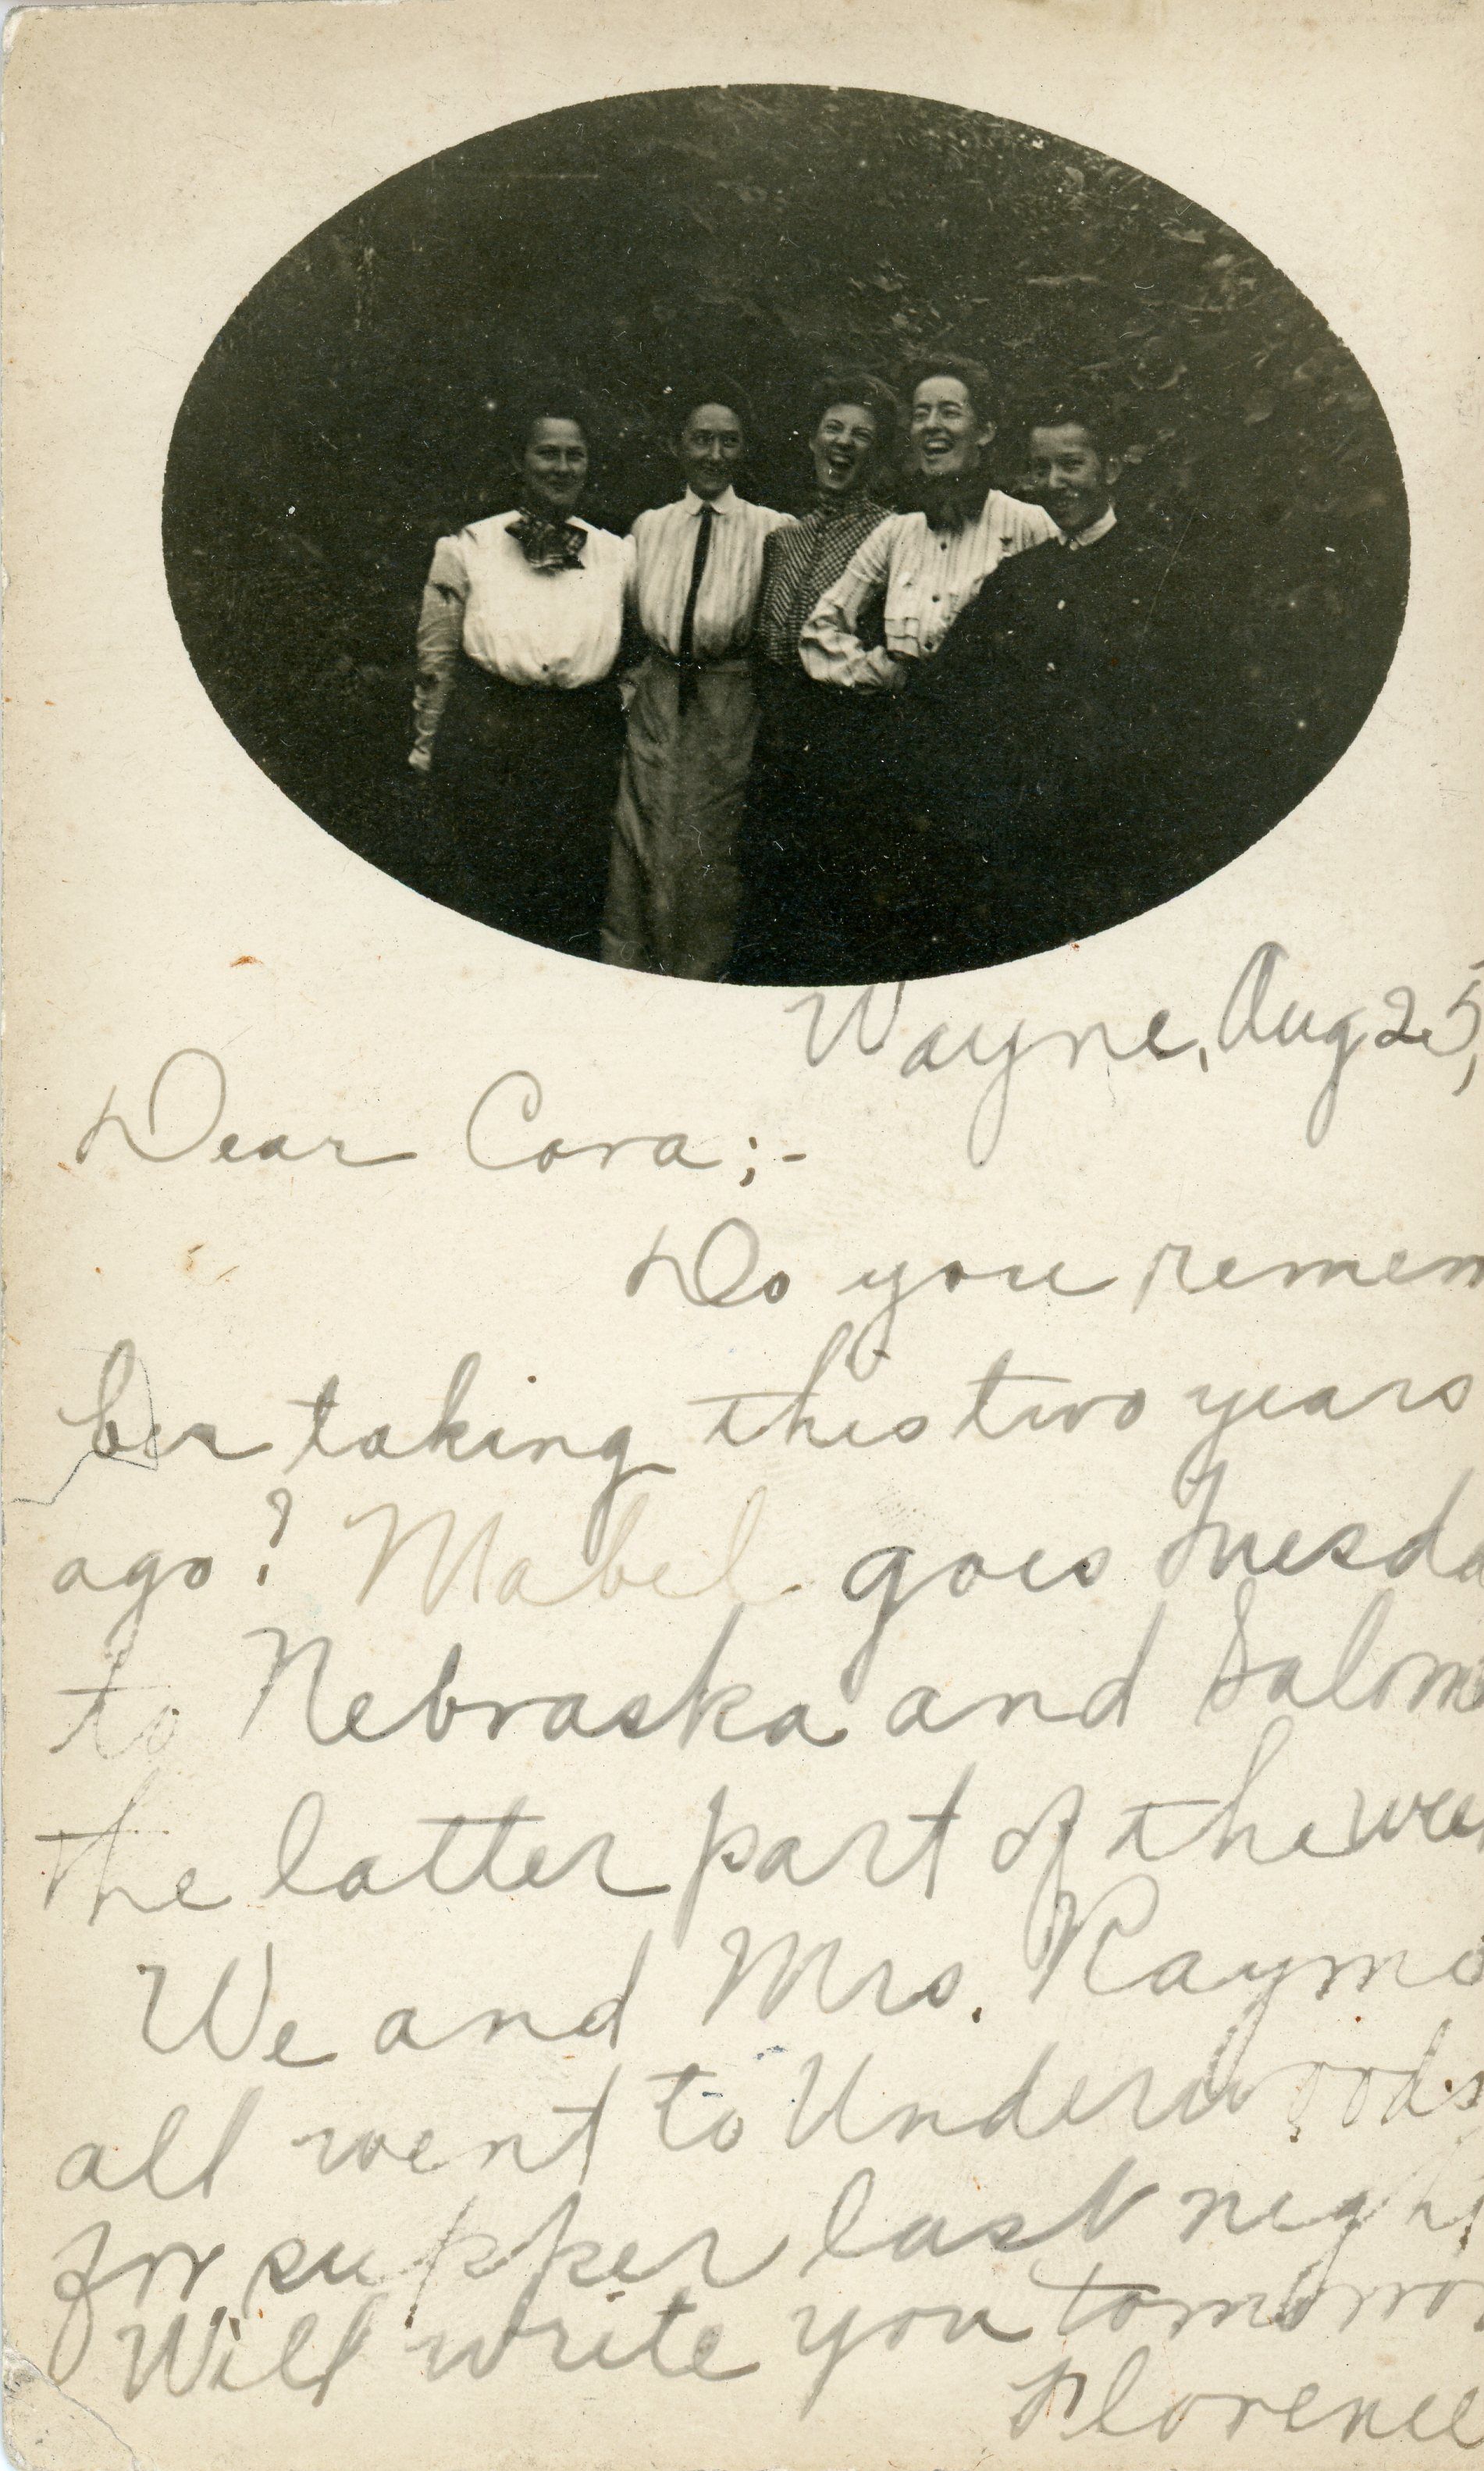 Wayne, Aug 25,
Dear Cora;-
Do you remem
ber taking this two years
ago? Mabel goes Tuesda
to Nebraska and Salom
the latter part of the wee
We and Mrs. Raymo
all went to Underwoods
for supper last night
Will write you tomorro
Florence